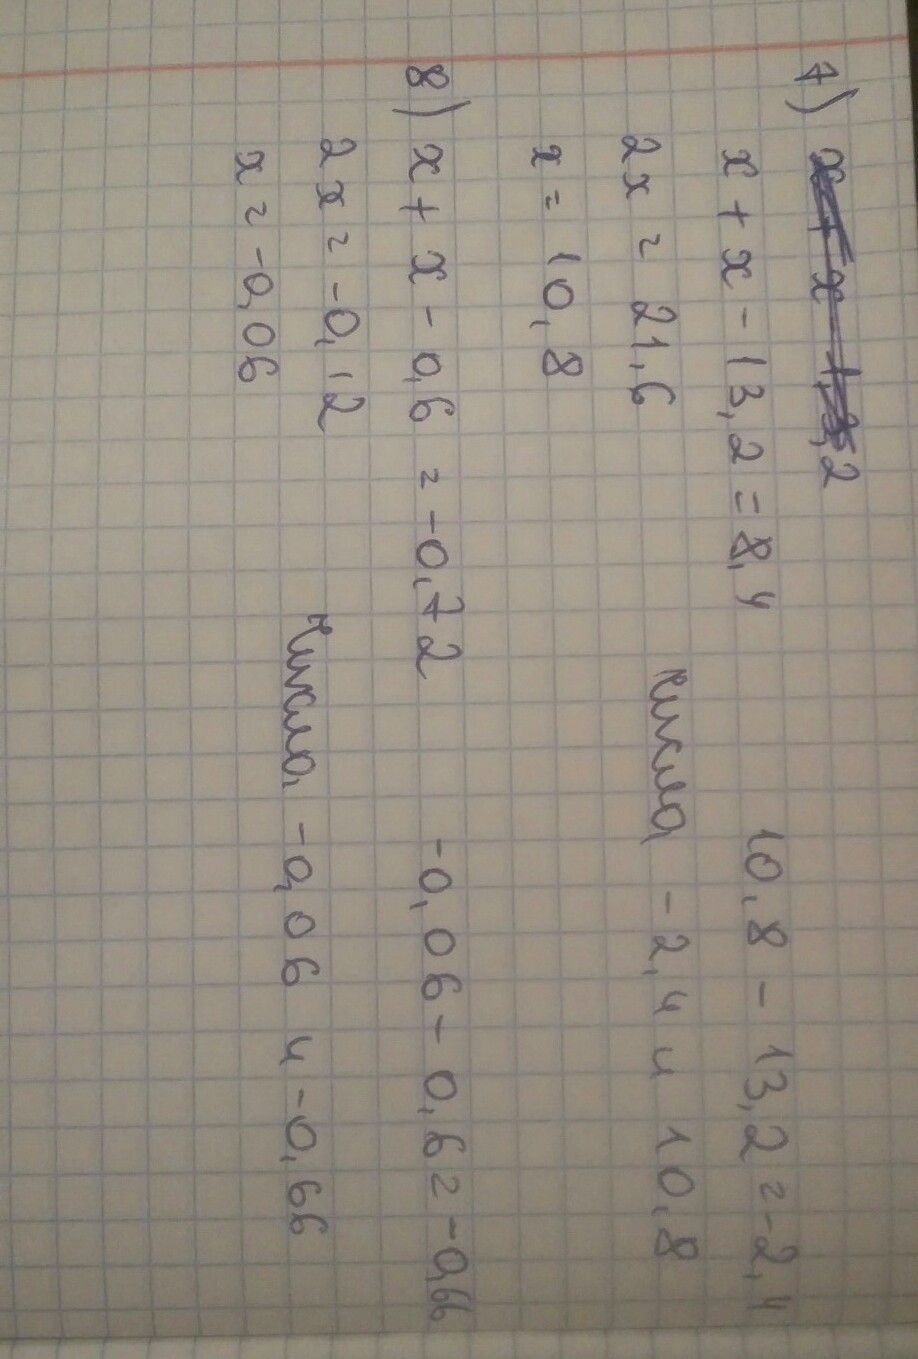 7) x + x - 13,2
x + x - 13,2 = 8,4 10,8 - 13,2 = -2,4
2x = 21,6 Числа -2,4 и 10,8
x = 10,8
8) x + x - 0,6 = -0,72 -0,06 - 0,6 = -0,66
2x = -0,12 Числа -0,06 и -0,66
x = -0,06